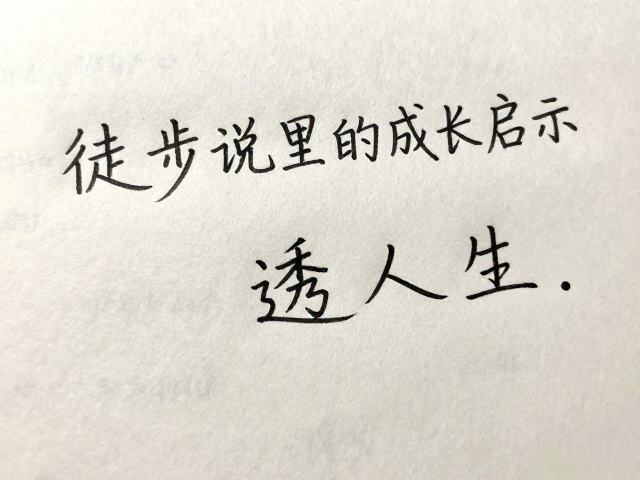 徒步说里的成长启示
透人生.